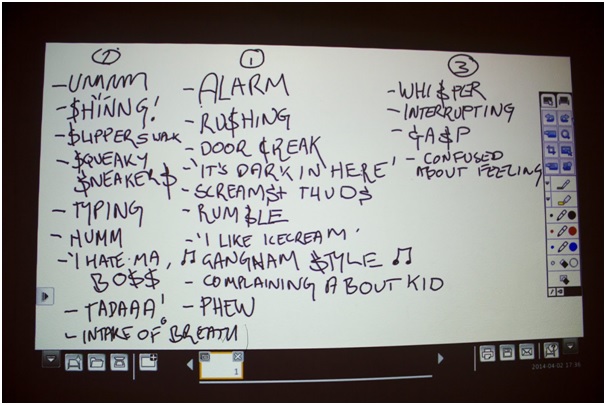 ②
-UMMM
-$HINNG!
-$LIPPERS WAX
-$QUEAKY
$NEAKER$
-TYPING
-HUMM
-'I HATE MA
BO$$
-TADAAA!
-INTAKE OF BREATH
①
-ALARM
-RU$HING
-DOOR CREAK
-'IT'S DARK IN HERE'
-SCREAM$+ THUD$
-RUMBLE
-'I LIKE ICECREAM'
♫ GANGNAM $TYLE ♫
- COMPLAINING ABOUT KID
- PHEW
③
-WHI$PER
-INTERRUPTING
-GA$P
- CONFUSED
ABOUT FEELING
1
2014-04-02 17:36